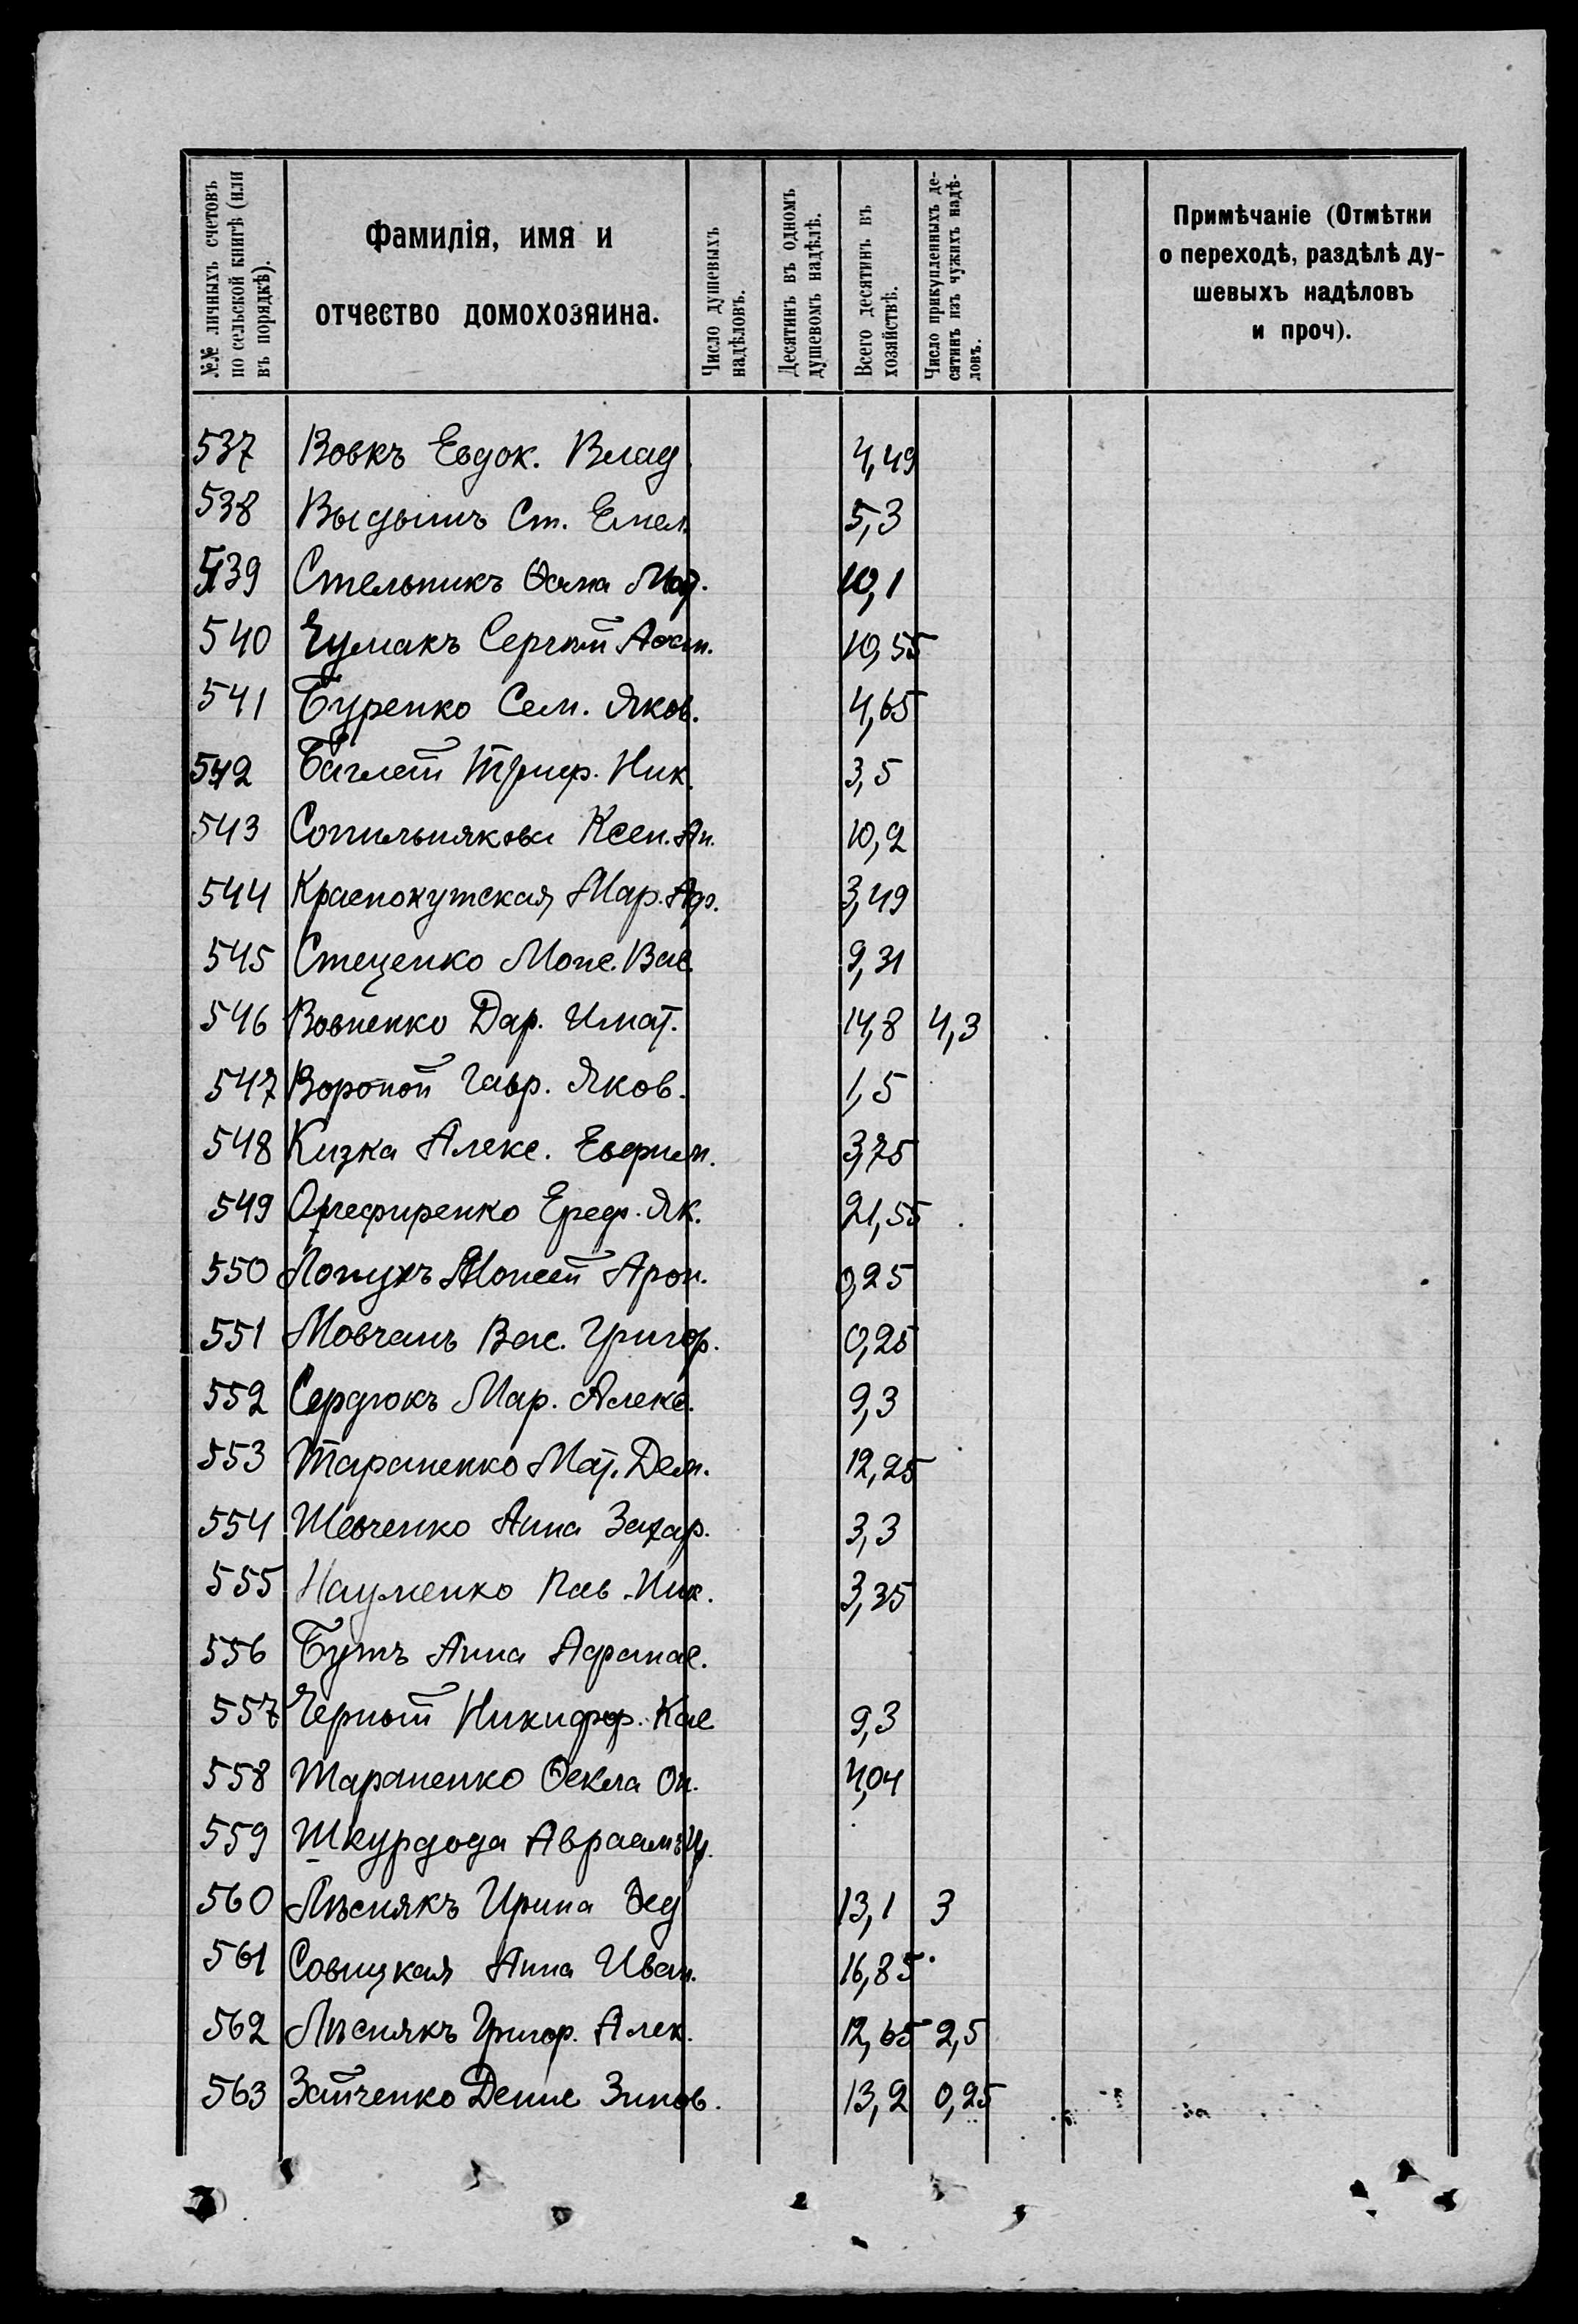 №№ личныхъ счетовъ по сельской книгѣ (или въ порядкѣ).
Фамилія, имя и отчество домохозяина.
Число душевыхъ надѣловъ.
Десятинъ въ одномъ душевомъ надѣлѣ.
Всего десятинъ въ хозяйствѣ.
Число прикупленныхъ десятинъ изъ чужихъ надѣловъ.
Примѣчаніе (Отмѣтки о переходѣ, раздѣлѣ душевыхъ надѣловъ и проч).
537 Вовкъ Евдок. Влад 4,49
538 Ст. Емел. 5,3
539 Стельникъ Ѳома 10,1
540 Чумакъ Сергѣй 10,55
541 Буренко Сем. Яков. 4,65
542 Баглей Триф. Ник. 3,5
543 Сопильнякова Ксен. Ан. 10,2
544 Краснокутская Мар. 3,49
545 Стеценко Моис. Вас. 9,31
546 Вовненко Дар. Игнат. 14,8 4,3
547 Вороной Гавр. Яков. 1,5
548 Кизка Алекс. Евфим. 3,75
549 Як. 21,55
550 Лопухъ Моисей Арон. 0,25
551 Мовчанъ Вас. Григор. 0,25
552 Сердюкъ Мар. Алекс. 9,3
553 Тараненко Мат. Дем. 12,25
554 Шевченко Анна Захар. 3,3
555 Науменко Пав. Ник. 3,35
556 Бутъ Анна Афанас.
557 Черный Никифор. Кас. 9,3
558 Тараненко Ѳекла Он. 4,04
559 Шкурдода Авраамъ
560 Лѣснякъ Ирина Ѳед 13,1 3
561 Совицкая Анна Иван. 16,85
562 Лѣснякъ Григор. Алек. 12,65 2,5
563 Зайченко Денис Зинов. 13,2 0,25